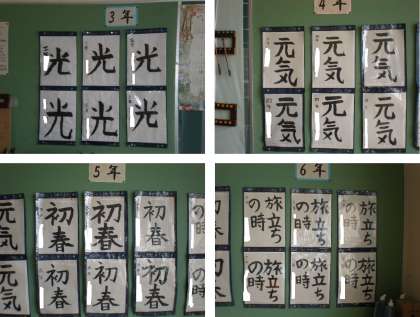 3年
光 光 光
光 光 光
4年
元気 元気 元気
元気 元気 元気
5年
元気 初春 初春 初春
元気 初春 初春 初春
6年
旅立ちの時 旅立ちの時 旅立ちの時
旅立ちの時 旅立ちの時 旅立ちの時